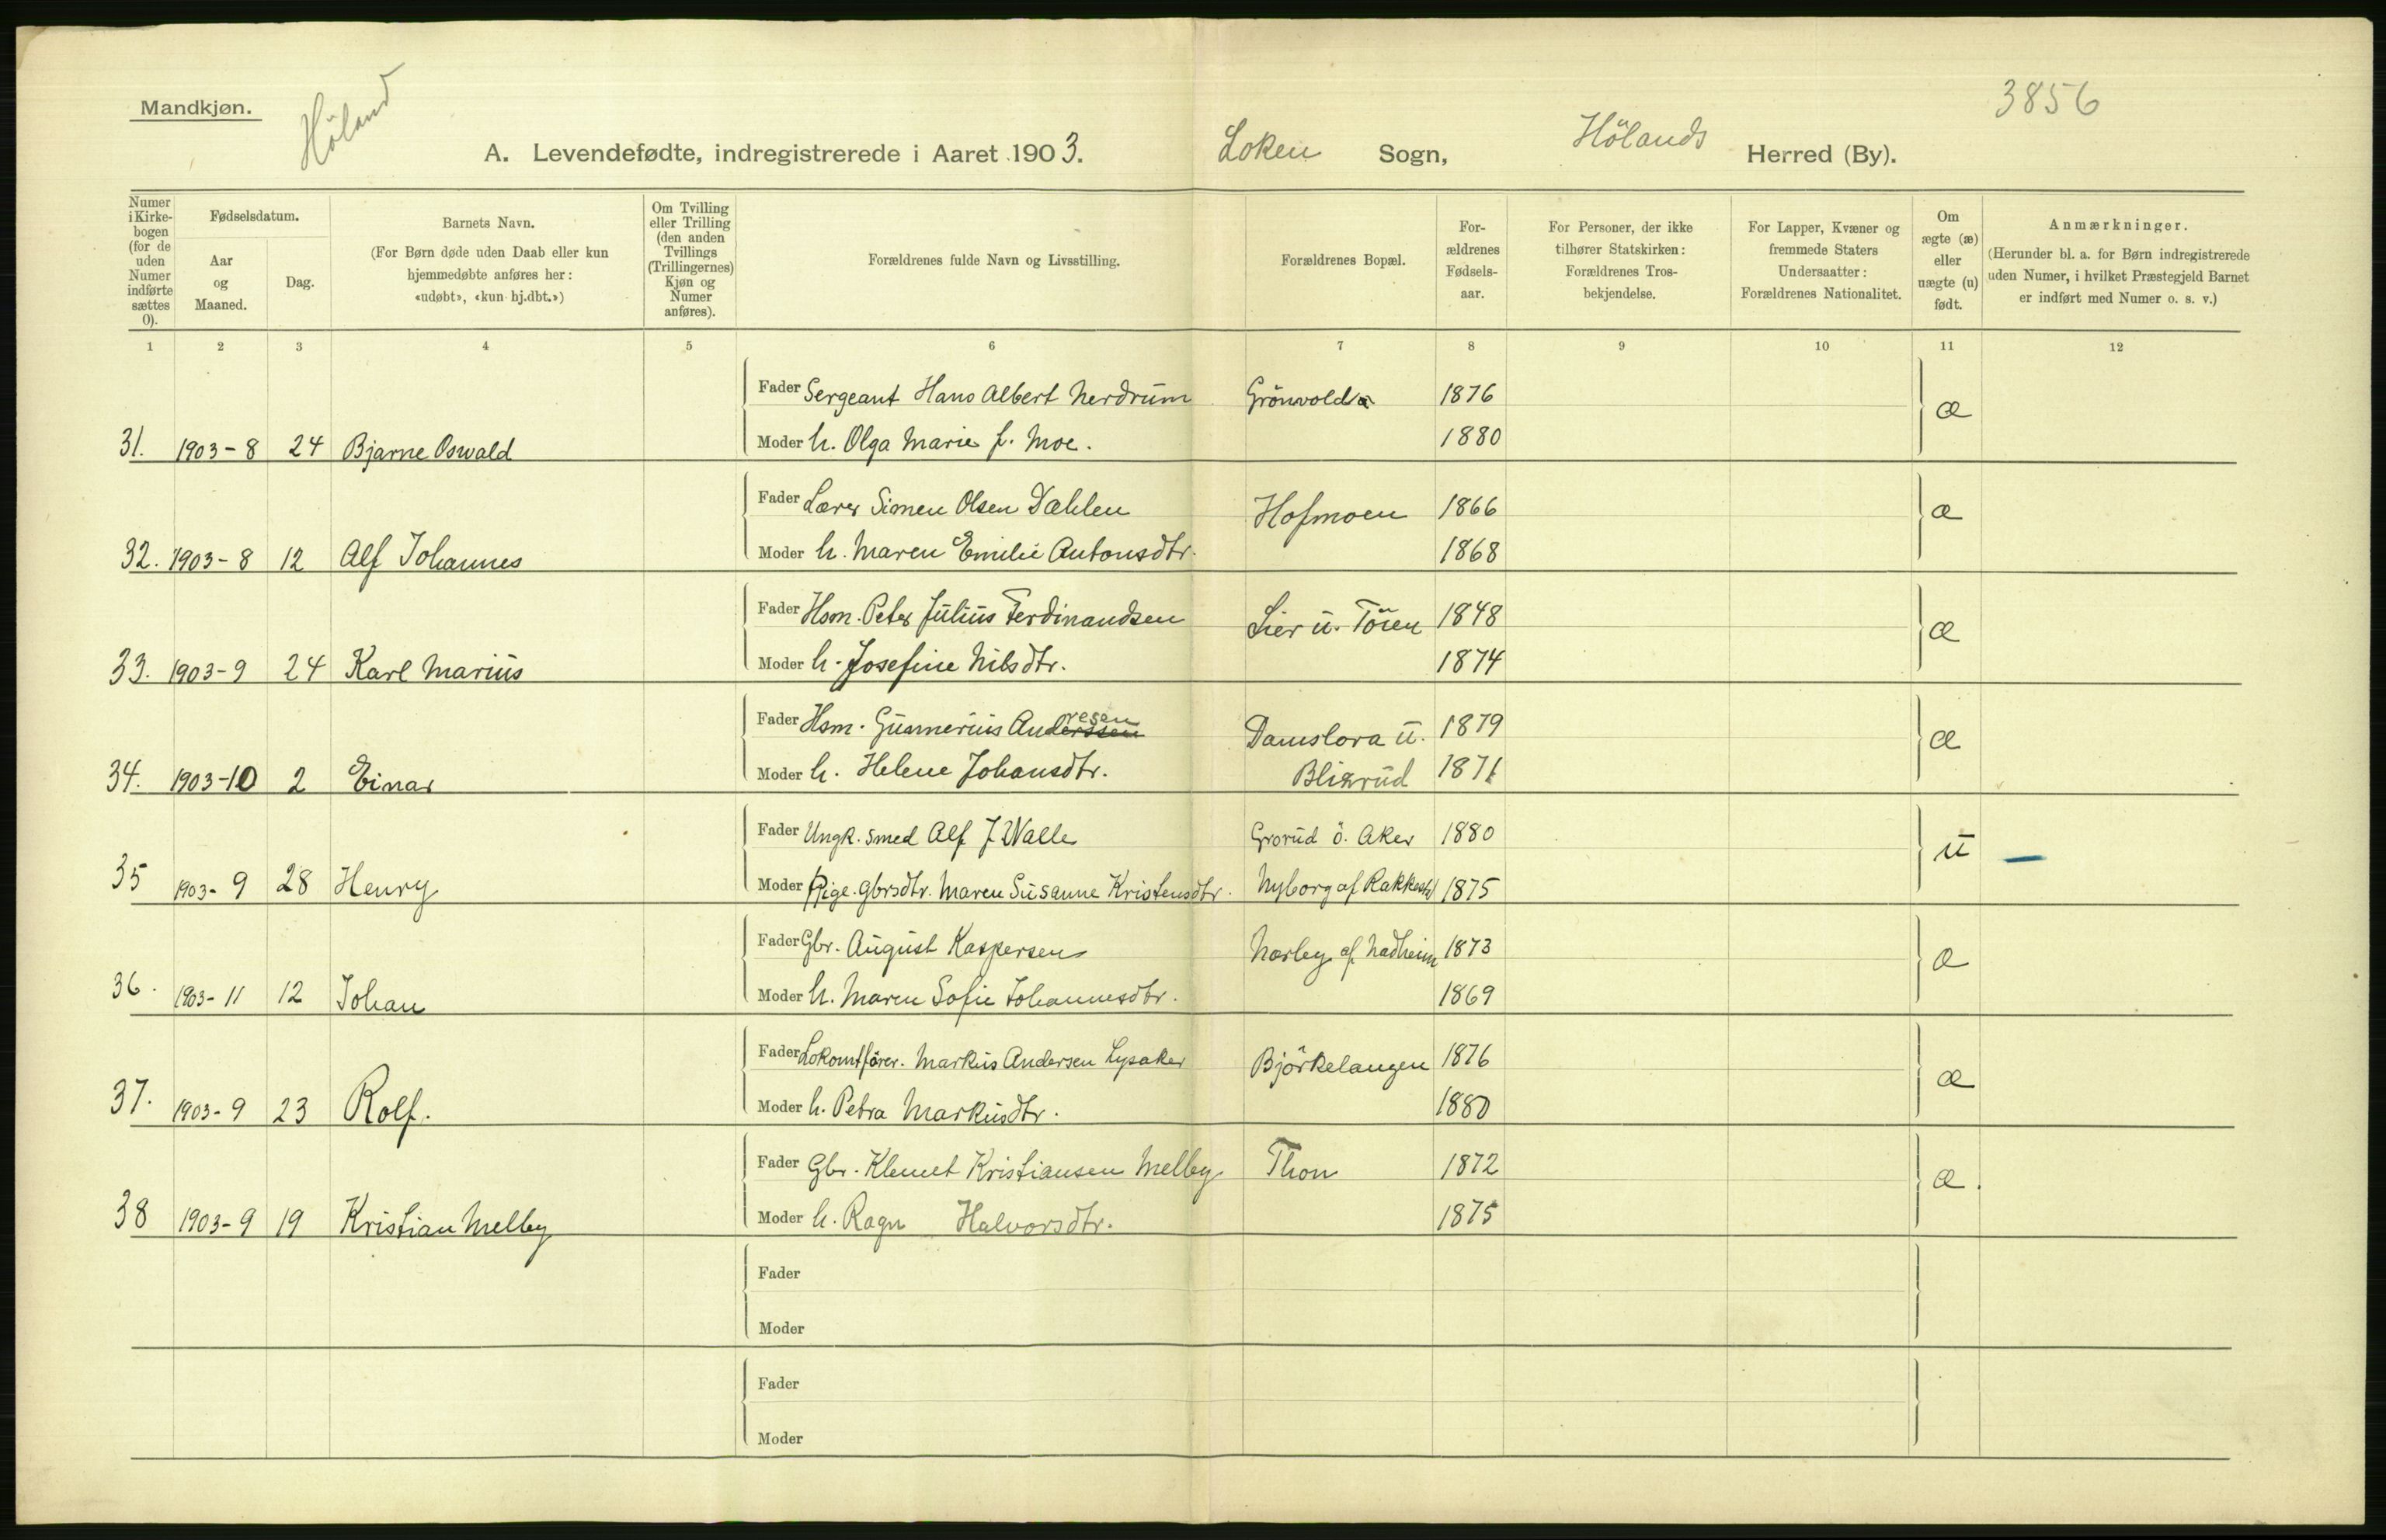 3856
Mandkjøn.
Höland
A. Levendefødte, indregistrerede i Aaret 1903. Loken Sogn, Hölands Herred (By).
Numer i Kirkebogen (for de uden Numer indførte sættes 0).
Fødselsdatum.
Aar og Maaned.
Dag.
Barnets Navn.
(For Børn døde uden Daab eller kun hjemmedøbte anføres her: «udøbt», «kun hj.dbt.»)
Om Tvilling eller Trilling (den anden Tvillings (Trillingernes) Kjøn og Numer anføres).
Forældrenes fulde Navn og Livsstilling.
Forældrenes Bopæl.
Forældrenes Fødselsaar.
For Personer, der ikke tilhører Statskirken: Forældrenes Trosbekjendelse.
For Lapper, Kvæner og fremmede Staters Undersaatter: Forældrenes Nationalitet.
Om ægte (æ) eller uægte (u) født.
Anmærkninger.
(Herunder bl. a. for Børn indregistrerede uden Numer, i hvilket Præstegjeld Barnet er indført med Numer o. s. v.)
1 2 3 4 5 6 7 8 9 10 11 12
Fader Sergeant Hans Albert Nerdrum Grönvold 1876 æ
31. 1903-8 24 Bjarne Oswald Moder h. Olga Marie f. Moe. 1880
Fader Lærer Simen Olsen Dæhlen Hofmoen 1866 æ
32. 1903-8 12 Alf Johannes Moder h. Maren Emilie Antonsdtr. 1868
Fader Hsm. Peter Julius Ferdinandsen Lier u. Töien 1848 æ
33. 1903-9 24 Karl Marius Moder h. Josefine Nilsdtr. 1874
Fader Hsm. Gunnerius Anderssen resen Damslora u. 1879 æ
34. 1903-10 2 Einar Moder h. Helene Johansdtr. Blixrud 1871
Fader Ungk. smed Alf J Walle Grorud ö. Aker 1880 u —
35 1903-9 28 Henry Moder Pige. Gbrsdtr. Maren Susanne Kristensdtr. Nyborg af Rakkestd 1875
Fader Gbr. August Kaspersen Nærby af Nadheim 1873 æ
36. 1903-11 12 Johan Moder h. Maren Sofie Johannesdtr. 1869
Fader Lokomtfører. Markus Andersen Lysaker Björkelangen 1876 æ
37. 1903-9 23 Rolf. Moder h. Petra Markusdtr. 1880
Fader Gbr. Klemet Kristiansen Melby Thon 1872 æ.
38 1903-9 19 Kristian Melby Moder h. Ragn Halvorsdtr. 1875
Fader
Moder
Fader
Moder